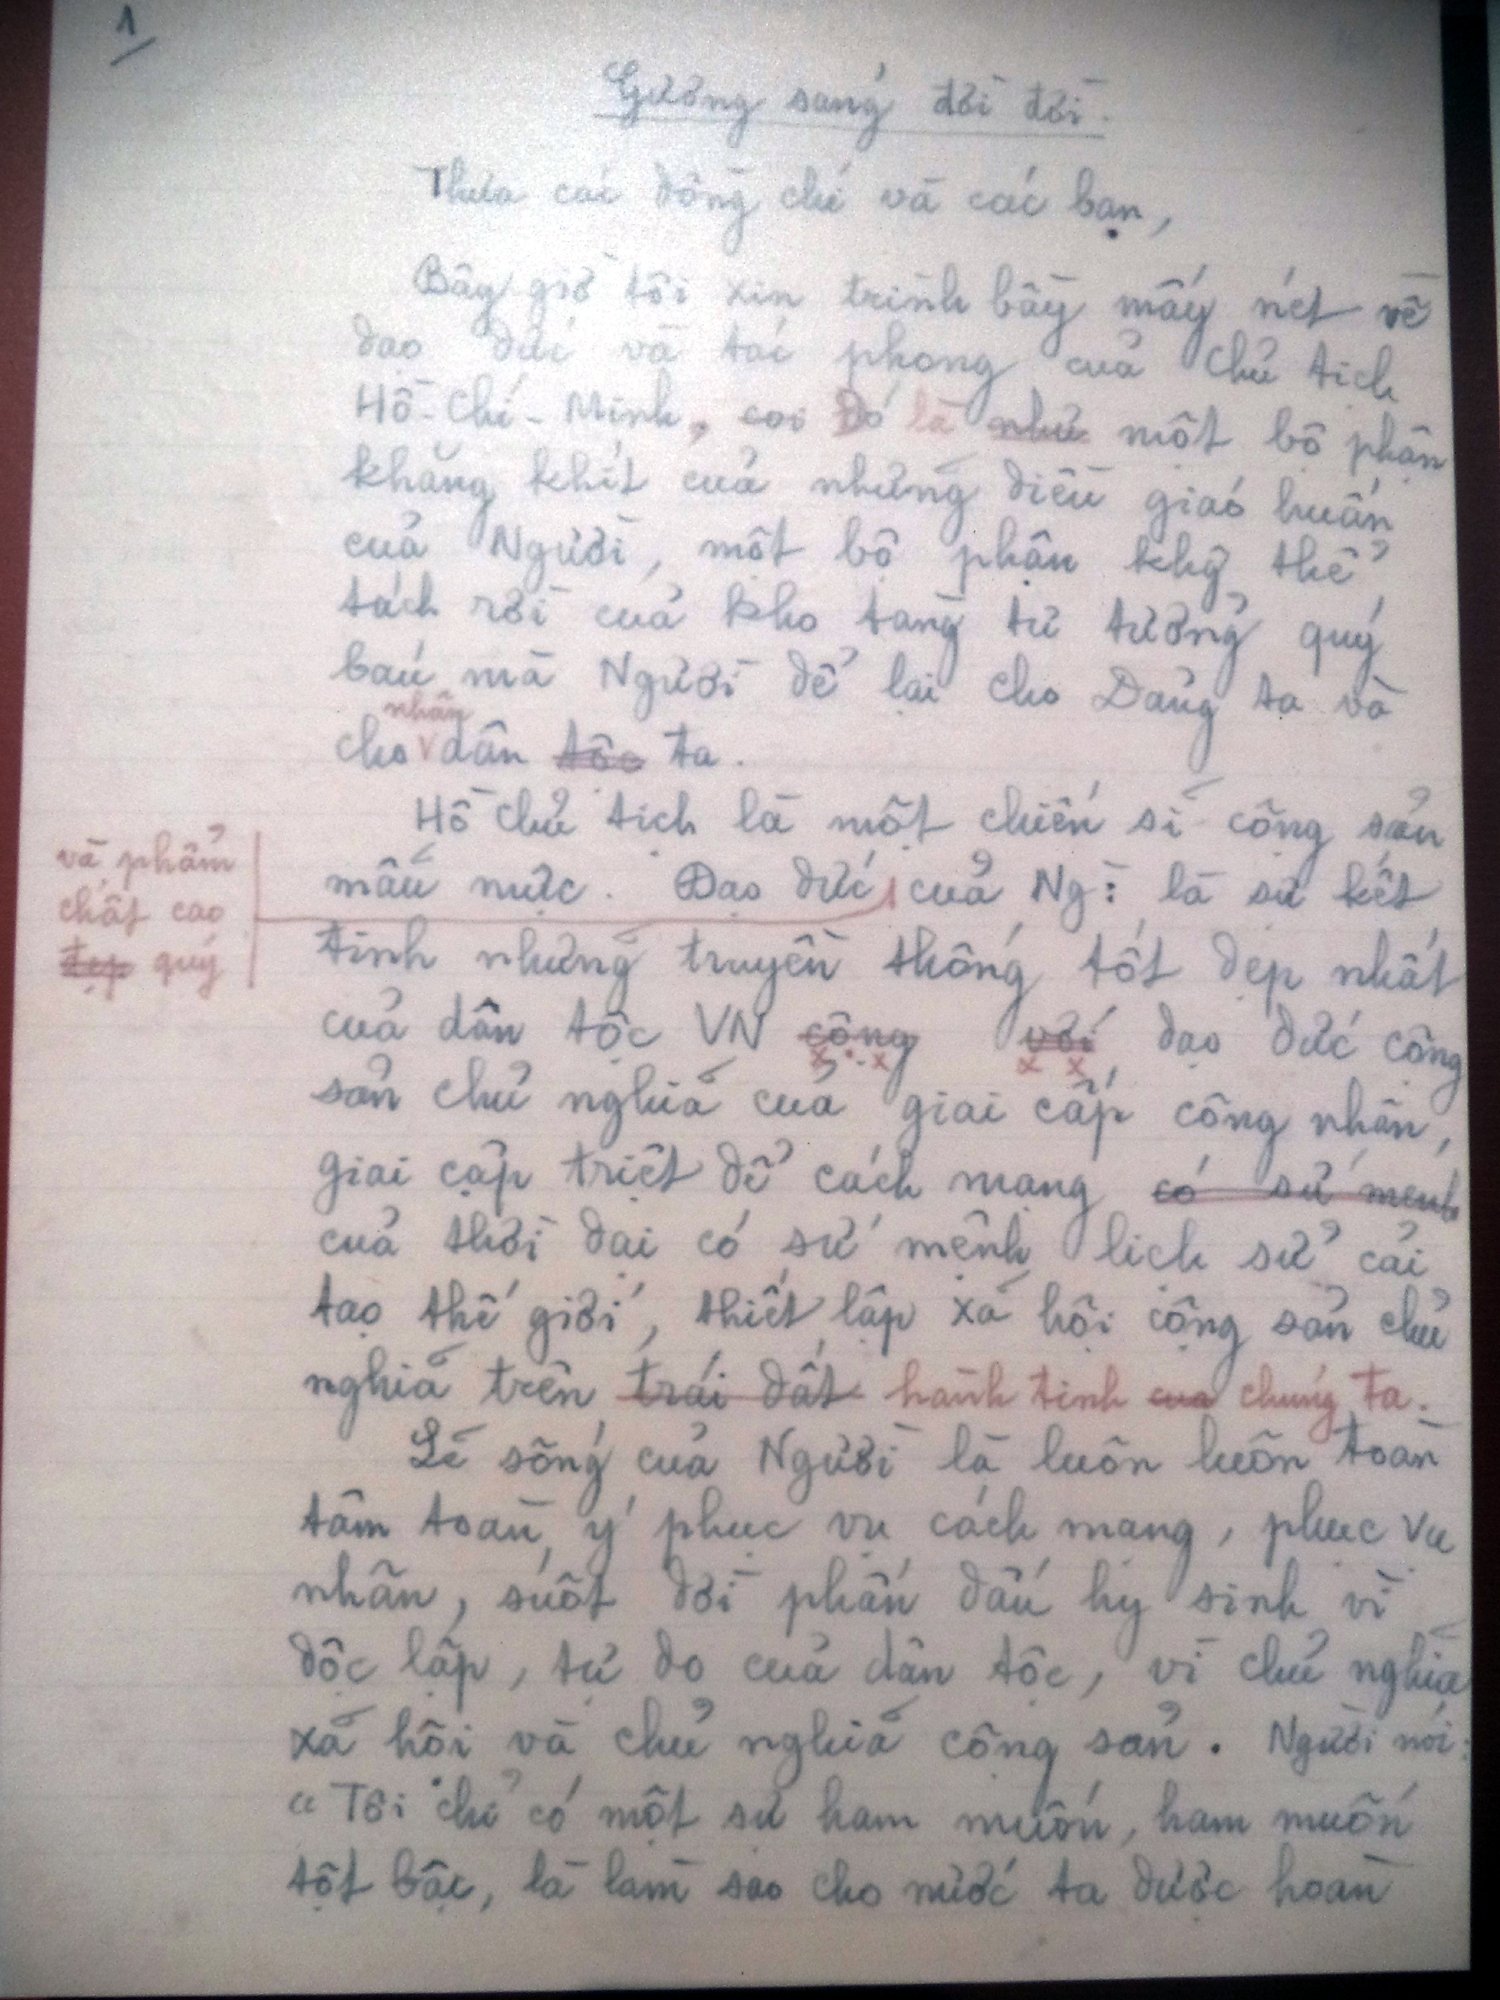 1
Gương sáng đời đời.
Thưa các đồng chí và các bạn,
Bây giờ tôi xin trình bầy mấy nét về
đạo đức và tác phong của Chủ tịch
Hồ-Chí-Minh, coi đó là như một bộ phận
khăng khít của những điều giáo huấn
của Người, một bộ phận khg thể
tách rời của kho tàng tư tưởng quý
báu mà Người để lại cho Đảng ta và
nhân
cho dân tộc ta.
Hồ Chủ tịch là một chiến sĩ cộng sản
mẫu mực. Đạo đức của Ng: là sự kết
và phẩm
chất cao
đẹp quý
tinh những truyền thống tốt đẹp nhất
của dân tộc VN cộng với đạo đức cộng
sản chủ nghĩa của giai cấp công nhân,
giai cấp triệt để cách mạng có sứ mệnh
của thời đại có sứ mệnh lịch sử cải
tạo thế giới, thiết lập xã hội cộng sản chủ
nghĩa trên trái đất hành tinh của chúng ta.
Lẽ sống của Người là luôn luôn toàn
tâm toàn ý phục vụ cách mạng, phục vụ
nhân, suốt đời phấn đấu hy sinh vì
độc lập, tự do của dân tộc, vì chủ nghĩa
xã hội và chủ nghĩa cộng sản. Người nói:
"Tôi chỉ có một sự ham muốn, ham muốn
tột bậc, là làm sao cho nước ta được hoàn